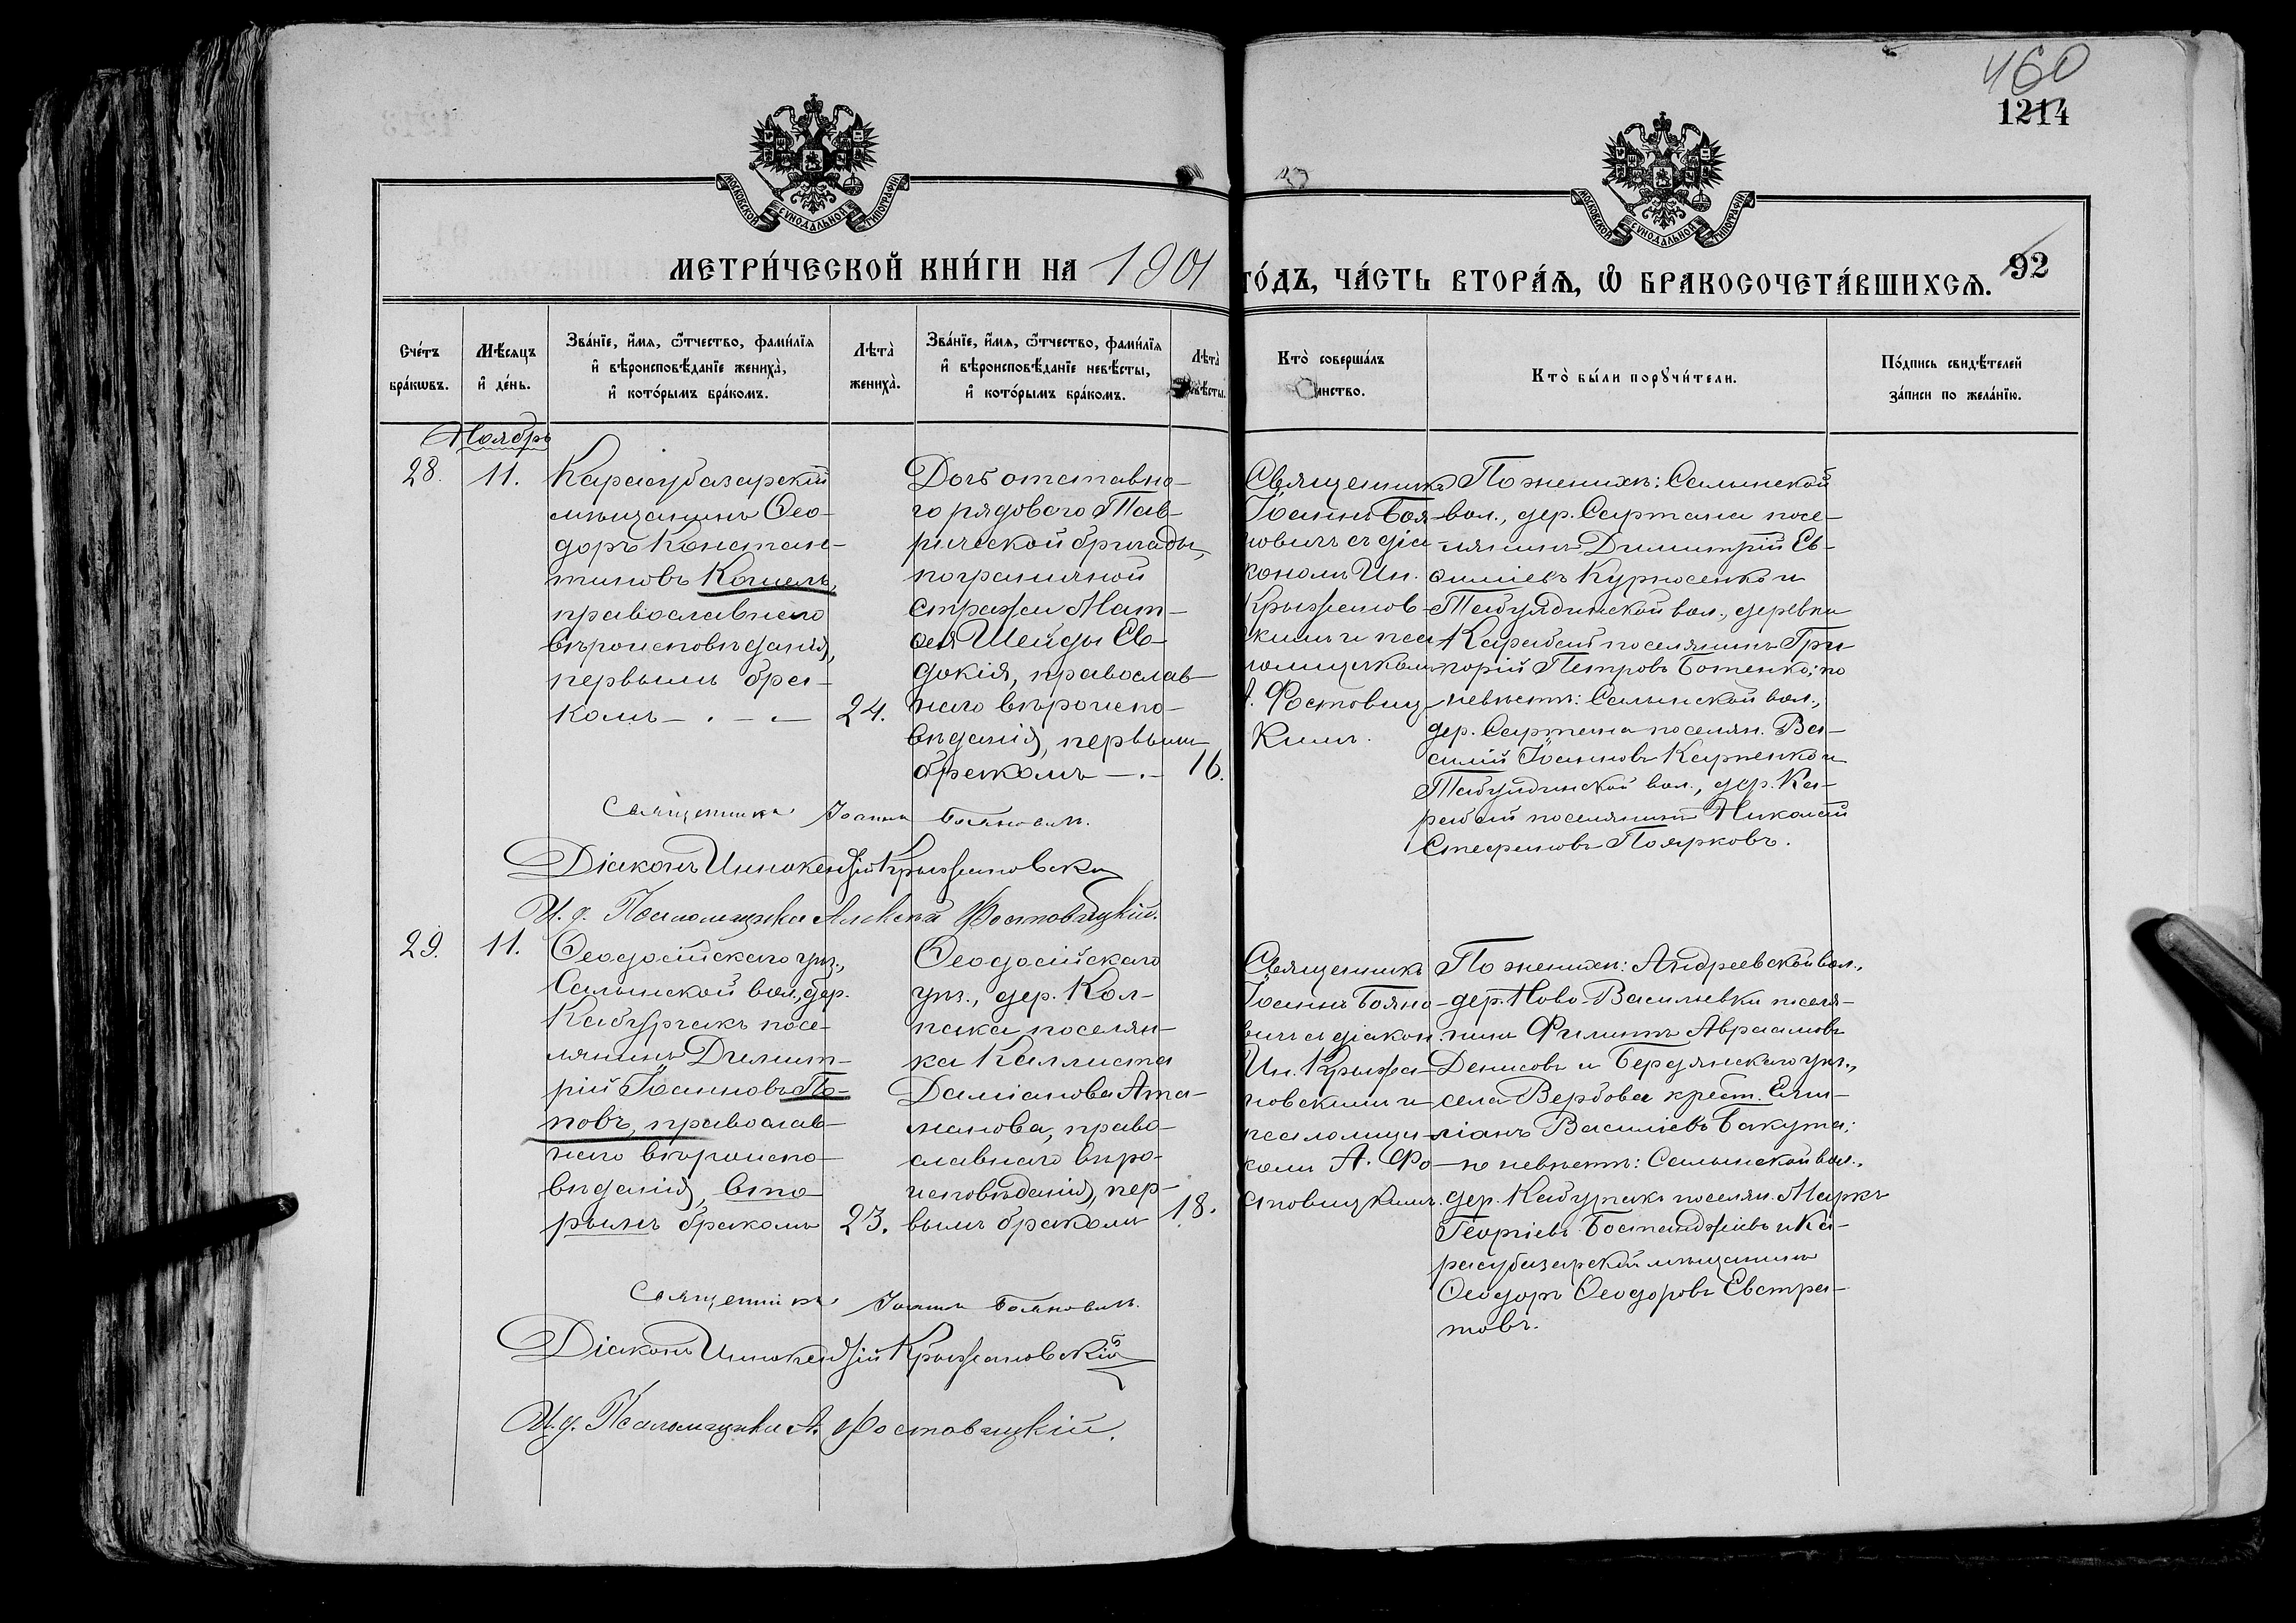 460
1214
МОСКОВСКОЙ СѴНОДАЛЬНОЙ ТИПОГРАФІИ
МОСКОВСКОЙ СѴНОДАЛЬНОЙ ТИПОГРАФІИ
МЕТРИ́ЧЕСКОЙ КНИ́ГИ НА 1901
ГО́ДЪ, ЧА́СТЬ ВТОРА́Ѧ, Ѡ БРАКОСОЧЕТА́ВШИХСѦ.
92
Сче́тъ бра́кѡвъ.
Мѣ́сѧцъ и де́нь.
Зва́нїе, и́мѧ, ѻ҆́тчество, фами́лїѧ
и вѣроисповѣ́данїе жениха̀,
и кото́рымъ бра́комъ.
Лѣта̀ жениха̀.
Зва́нїе, и́мѧ, ѻ҆́тчество, фами́лїѧ
и вѣроисповѣ́данїе невѣ́сты,
и кото́рымъ бра́комъ.
Лѣта̀ невѣ́сты.
Кто̀ соверша́лъ
инство.
Кто̀ бы́ли порꙋчи́тели.
По́дпись свидѣ́телей
за́писи по жела́нїю.
Ноябрь
28.
11.
Карасубазарскій
мѣщанинъ Ѳео-
доръ Констан-
тиновъ Кошель,
православнаго
вѣроисповѣданія,
первымъ бра-
комъ
24.
Дочь отставна-
го рядового Тав-
рической бригады,
пограничной
стражи Мат-
ѳея Шейды Ев-
докія, православ-
наго вѣроиспо-
вѣданія, первымъ
бракомъ
16.
Священникъ
Іоаннъ Боя-
новичъ съ діа-
кономъ Ин.
Крыжанов-
скимъ и пса-
ломщикомъ
А. Фостовиц-
кимъ.
По женихѣ: Салынской
вол., дер. Сартана посе-
лянинъ Димитрій Ев-
ѳиміевъ Курносенко и
Табулдинской вол., деревни
Карабай поселянинъ Гри-
горій Петровъ Ботенко; по
невѣстѣ: Салынской вол.,
дер. Сартана поселян. Ва-
силій Іоанновъ Карпенко и
Табулдинской вол., дер. Ка-
рабай поселянинъ Николай
Стефановъ Поярковъ.
Священникъ Іоаннъ Бояновичъ.
Діаконъ Иннокентій Крыжановскій
И. д. Псаломщика Алексѣй Фостовицкій.
29.
11.
Ѳеодосійскаго уѣз.,
Салынской вол., дер.
Кабурчакъ посе-
лянинъ Димит-
рій Іоанновъ По-
повъ, православ-
наго вѣроиспо-
вѣданія, вто-
рымъ бракомъ
23.
Ѳеодосійскаго
уѣз., дер. Кол-
пака поселян-
ка Каллиста
Даміанова Ата-
манова, право-
славнаго вѣро-
исповѣданія, пер-
вымъ бракомъ
18.
Священникъ
Іоаннъ Бояно-
вичъ съ діакон.
Ин. Крыжа-
новскимъ и
псаломщи-
комъ А. Фо-
стовицкимъ.
По женихѣ: Андреевской вол.,
дер. Ново Васильевки поселя-
нинъ Филиппъ Авраамовъ
Денисовъ и Бердянскаго уѣз.,
села Вербова крест. Еми-
ліанъ Василіевъ Бакута;
по невѣстѣ: Салынской вол.,
дер. Кабурчакъ поселян. Маркъ
Георгіевъ Бостанджіевъ и Ка-
расубазарскій мѣщанинъ
Ѳеодоръ Ѳеодоровъ Евстра-
товъ.
Священникъ Іоаннъ Бояновичъ.
Діаконъ Иннокентій Крыжановскій
И. д. Псаломщика А. Фостовицкій.